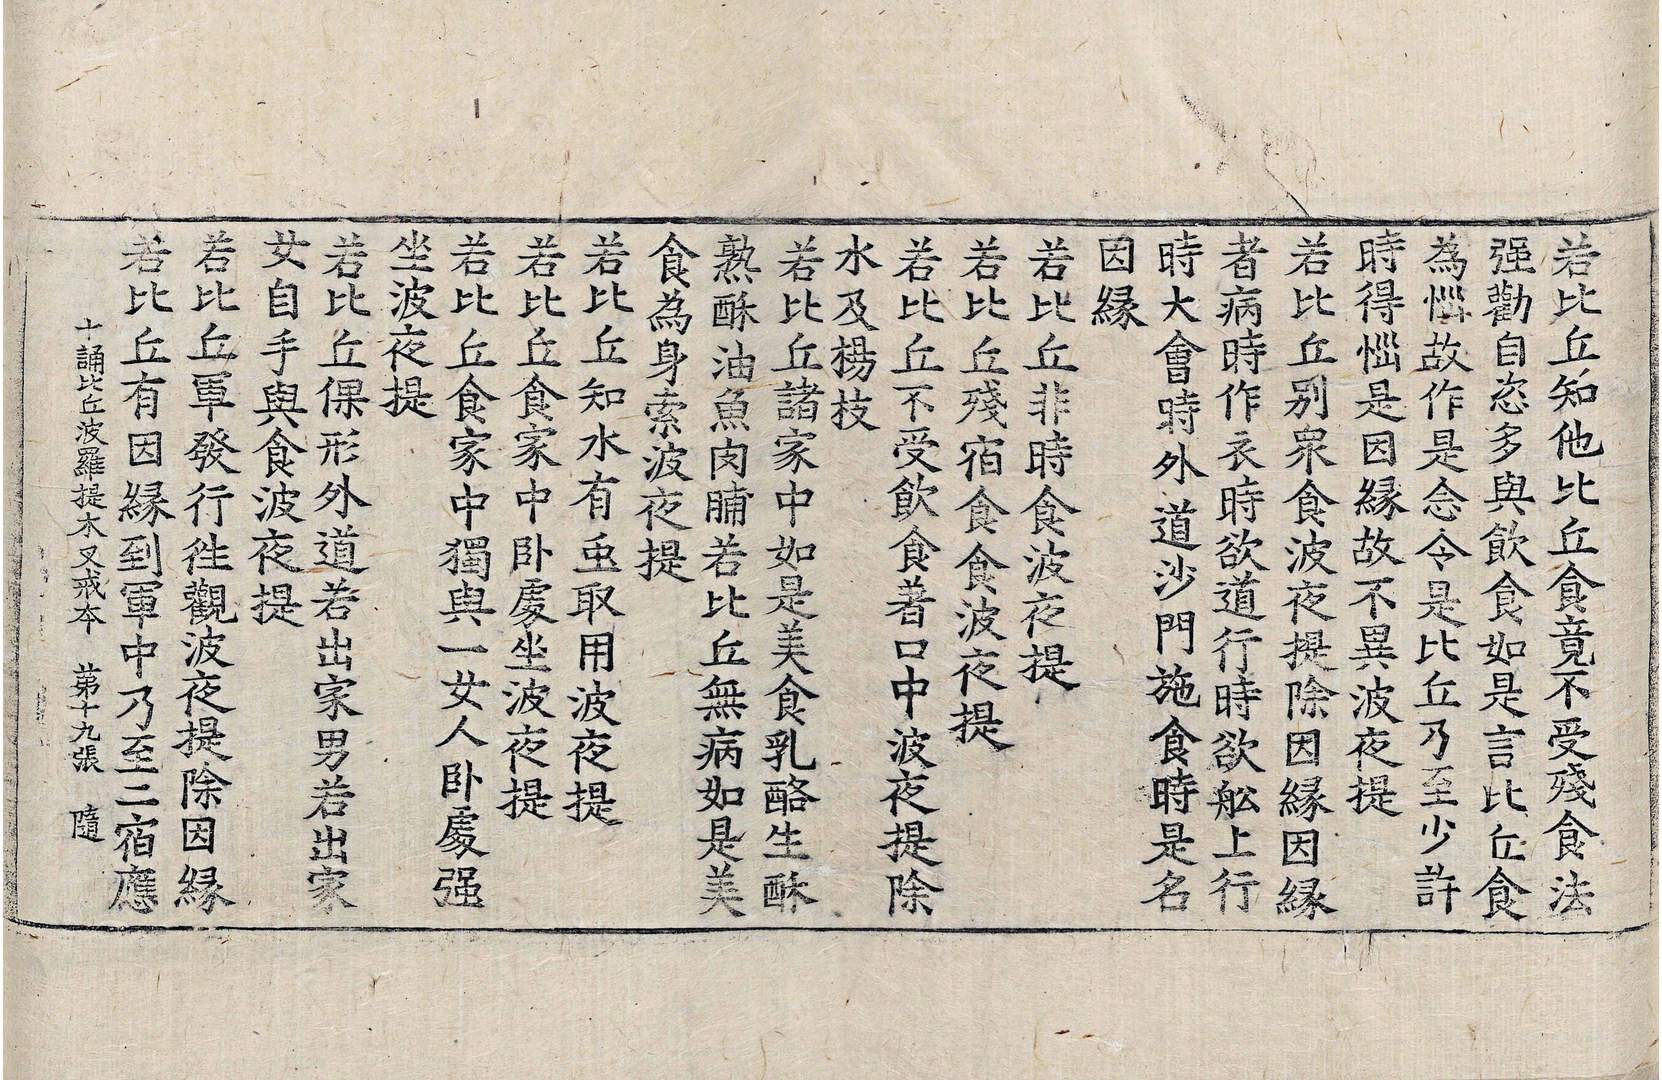 若比丘知他比丘食竟不受殘食法
强勸自恣多與飮食如是言比丘食
為惱故作是念令是比丘乃至少許
時得惱是因縁故不異波夜提
若比丘别衆食波夜提除因縁因縁
者病時作衣時欲道行時欲舩上行
時大會時外道沙門施食時是名
因縁
若比丘非時食波夜提
若比丘殘宿食食波夜提
若比丘不受飲食著口中波夜提除
水及楊枝
若比丘諸家中如是美食乳酪生酥
熟酥油魚肉脯若比丘無病如是美
食為身索波夜提
若比丘知水有虫取用波夜提
若比丘食家中卧處坐波夜提
若比丘食家中獨與一女人卧處强
坐波夜提
若比丘倮形外道若出家男若出家
女自手與食波夜提
若比丘軍發行徃觀波夜提除因縁
若比丘有因縁到軍中乃至二宿應
十誦比丘波羅提木叉戒夲　苐十九張　隨